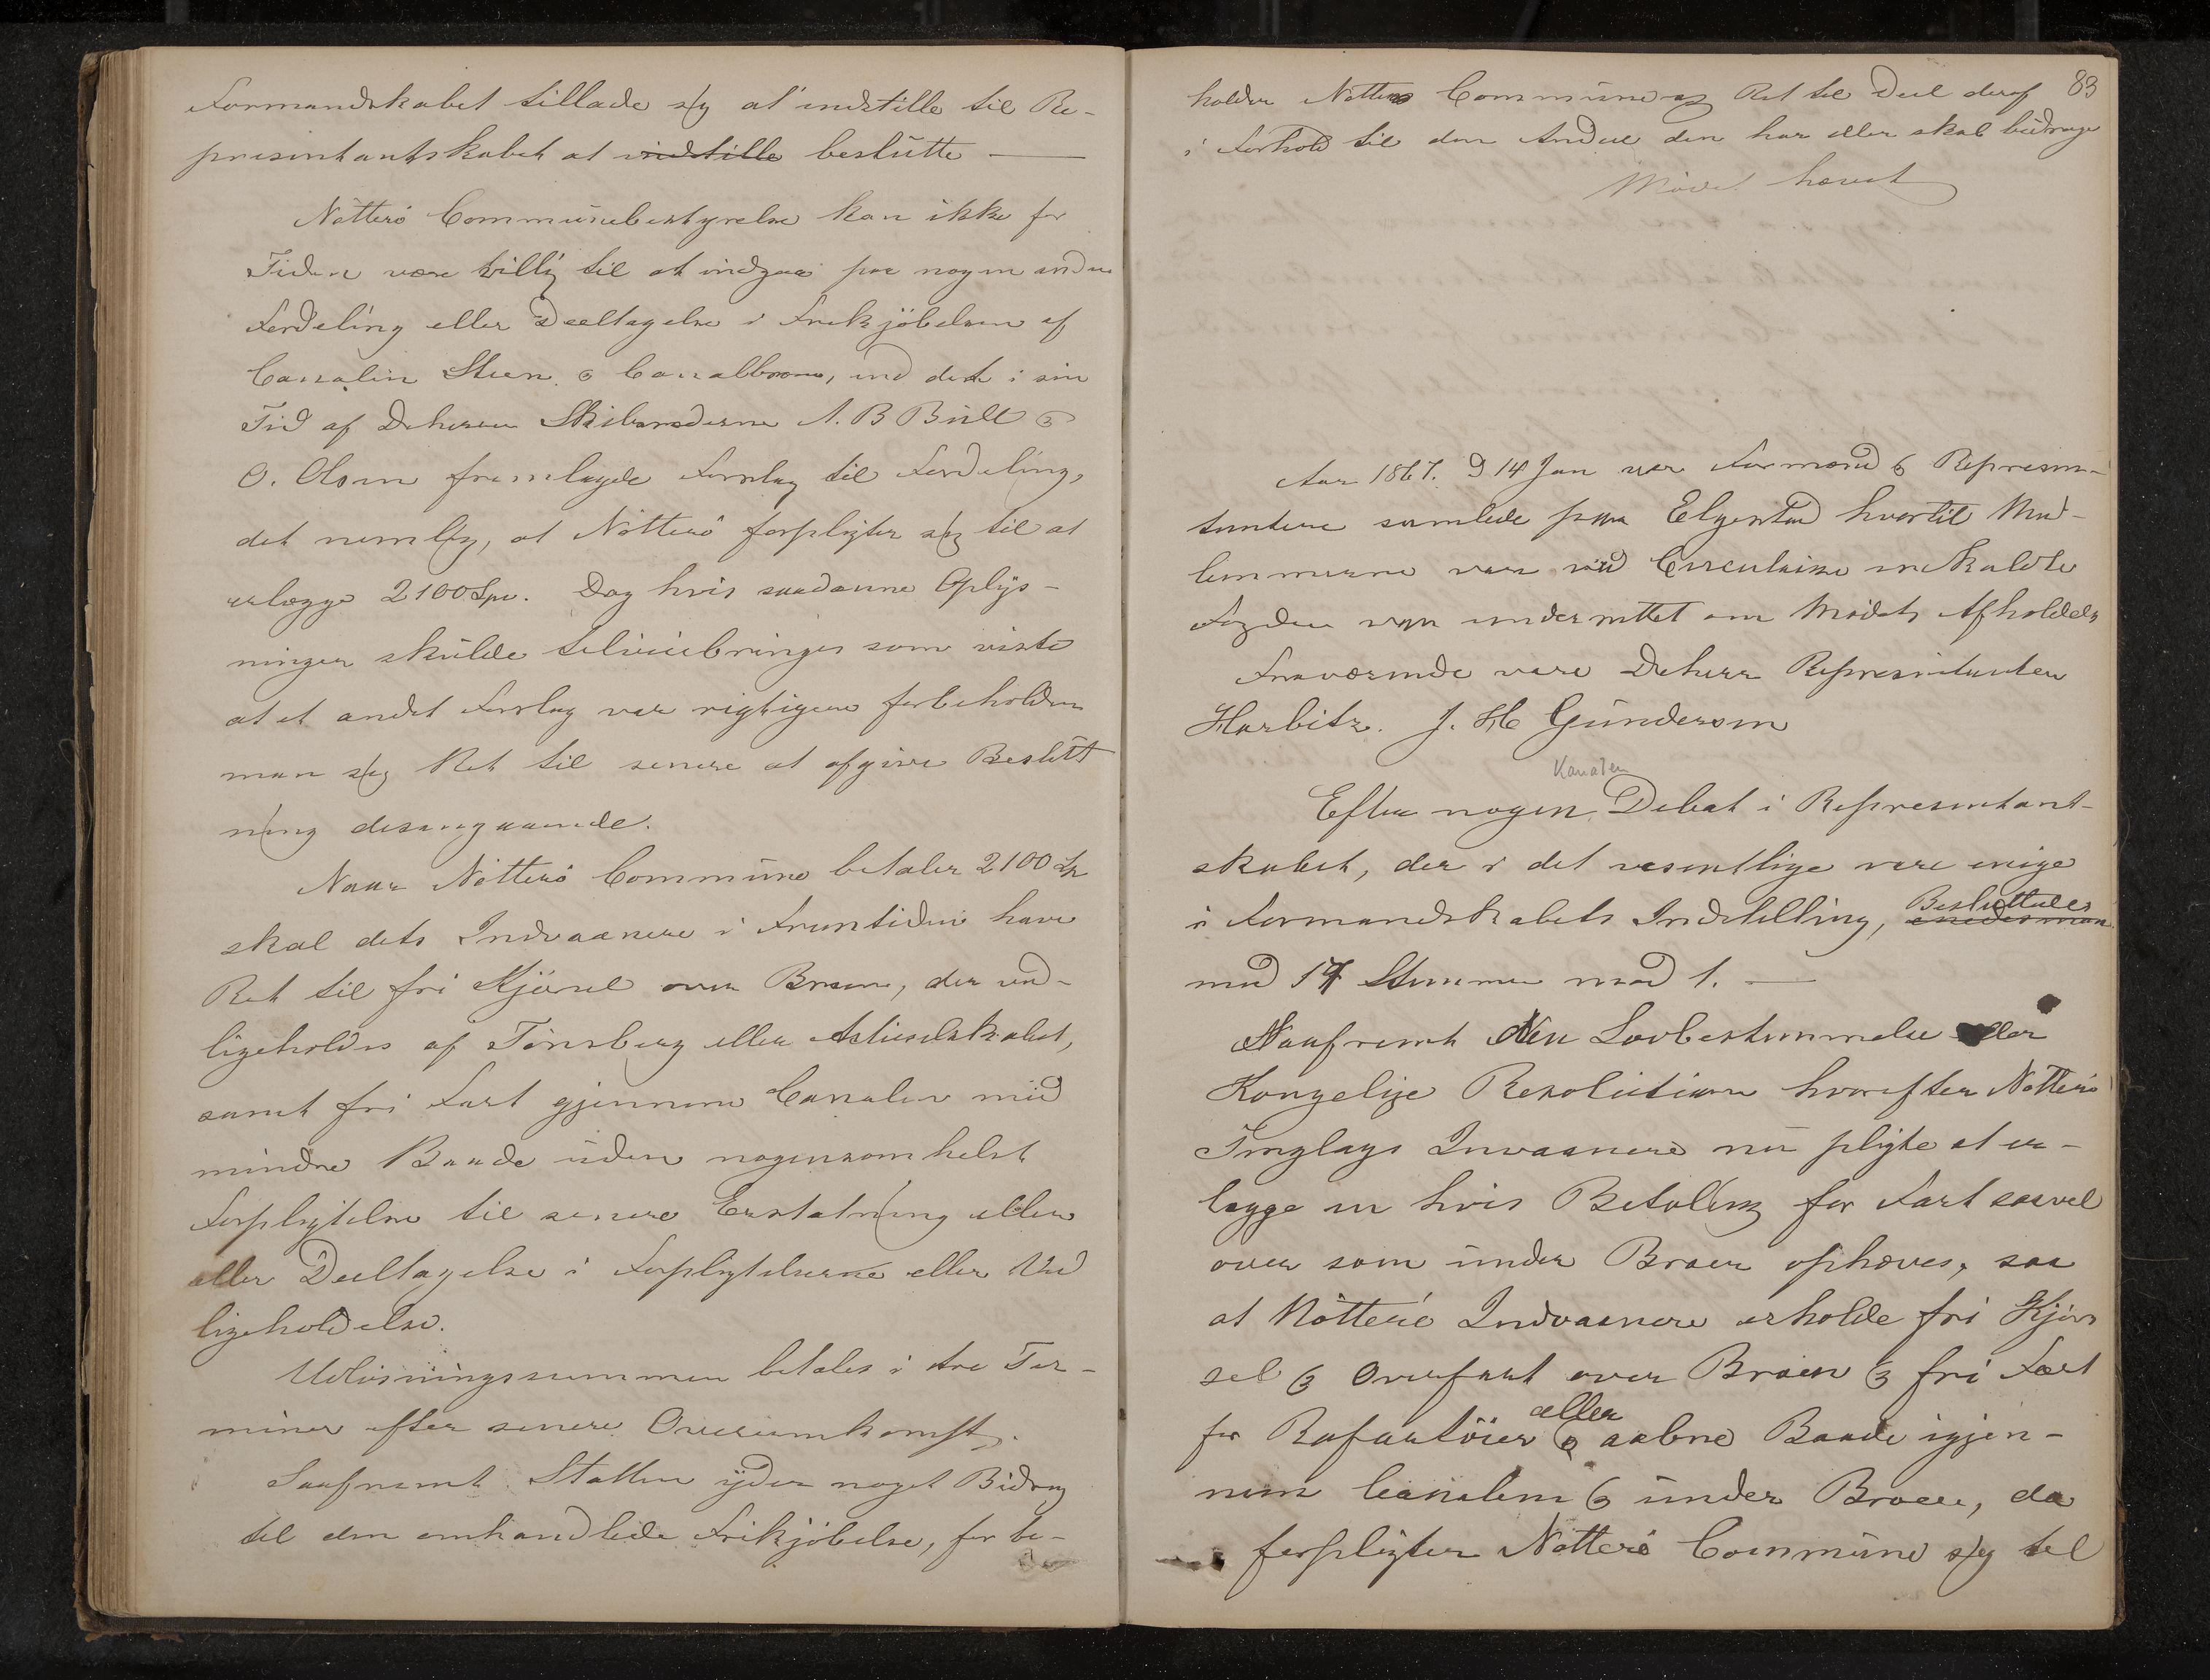 Formandskabet tillade sig at indstille til Re-
presentantskabet at indstille beslutte —
Nötterö Communebestyrelse kan ikke for
Tiden være villig til at indgaa paa nogen anden
Fordeling eller Deeltagelse i Frikjöbelsen af
Canalen Steen & Canalbroen, end det i sin
Tid af Dherrer Skibsrederne A. B Bull &
O. Olsen fremlagde Forslag til Fordeling,
det nemlig, at Nötterö forpligter sig til at
erlægge 2100 Spd. Dog hvis saadanne Oplys-
ninger skulde tilveiebringes som viste
at et andet Forslag var rigtigere forbeholder
man sig Ret til senere at afgive Beslut
ning desangaaende.
Naar Nötterö Commune betaler 2100 Sp
skal dets Indvaanere i Fremtiden have
Ret til fri Kjörsel over Broen, der ved-
ligeholdes af Tönsberg eller Actieselskabet,
samt fri Fart gjennem Canalen med
mindre Baade uden nogensomhelst
Forpligtelse til senere Erstatning eller
eller Deeltagelse i Forpligtelserne eller Ved
ligeholdelse.
Udlösningssummen betales i tre Ter-
miner efter senere Overeenskomst.
Saafremt Staten yder noget Bidrag
til den omhandlede Frikjöbelse, for be-
83
holder Nötterö Commune sig Ret til Deel deraf
i Forhold til den Andeel den har eller skal bidrage
Mödet hævet
Aar 1867. D 14 Jan var Formænd & Represen-
tantere samlede paa Elgestad hvortil Med-
lemmerne var ved Circulaire indkaldte
Fogden var underrettet om Mödets Afholdelse
Fraværende vare Dherrer Representanter
Harbitz. J. H Gundersen
Kanalen
Efter nogen Debat i Representant-
skabet, der i det væsentlige vare enige
i Formandskabets Indstilling, Besluttedes
enedes man
med 17 Stemmer mod 1. —
Saafremt den Lovbestemmelse eller
Kongelige Resolution hvorefter Nötterö
Tinglags Invaanere nu pligte at er-
lægge en hvis Betaling for Fart saavel
over som under Broen ophæves, saa
at Nötterö Indvaanere erholde fri Kjör
sel & Overfart over Broen & fri Fart
eller
for Rofartöier & aabne Baade igjen-
nem Canalen & under Broen, da
forpligter Nötterö Commune sig til